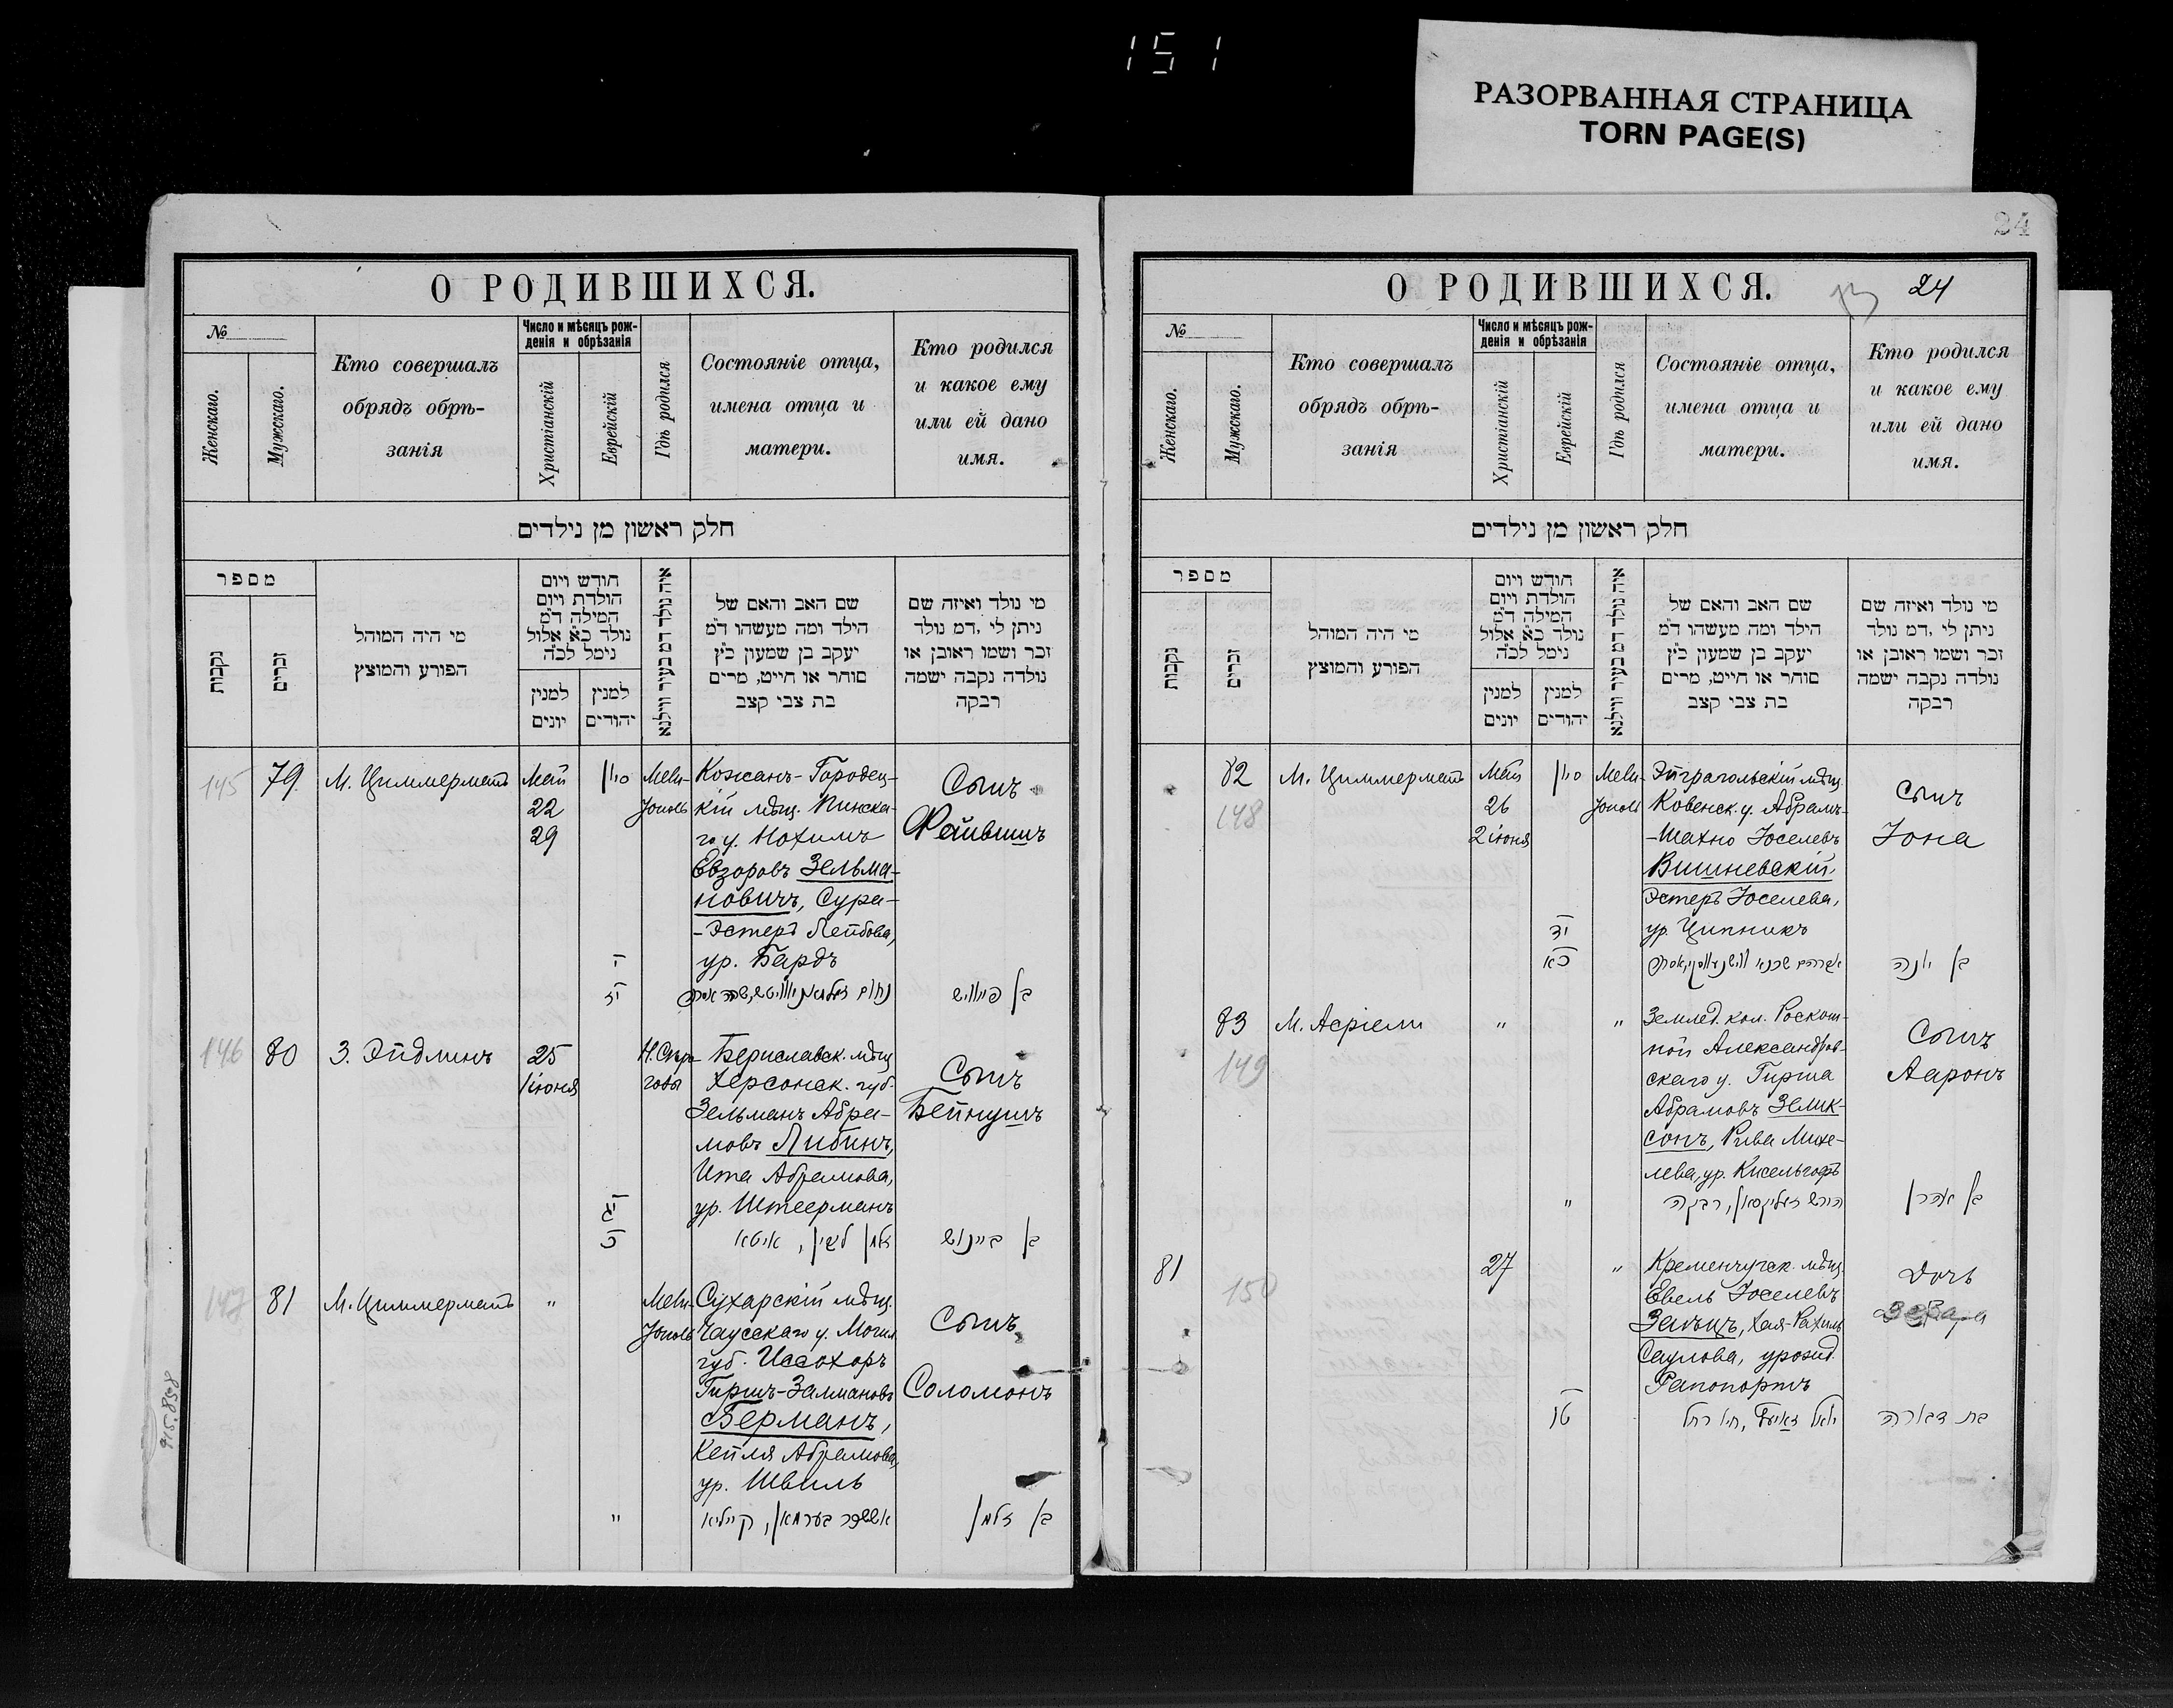 151
РАЗОРВАННАЯ СТРАНИЦА
TORN PAGE(S)
24
О РОДИВШИХСЯ.
№
Женскаго.
Мужскаго.
Кто совершалъ
обрядъ обрѣ-
занія
Число и мѣсяцъ рож-
денія и обрѣзанія
Христіанскій
Еврейскій
Гдѣ родился
Состояніе отца,
имена отца и
матери.
Кто родился
и какое ему
или ей дано
имя.
חלק ראשון מן נילדים
מספר
נקבות
זכרים
מי היה המוהל
הפורע והמוצץ
חודש ויום
הולדת ויום
המילה ד״מ
נולד כ״א אלול
נימל לכ״ה
למנין
יונים
למנין
יהודים
איה נולד דמ בעיר ווילנא
שם האב והאם של
הילד ומה מעשהו ד״מ
יעקב בן שמעון כ״ץ
סוחר או חייט, מרים
בת צבי קצב
מי נולד ואיזה שם
ניתן לי ,דמ נולד
זכר ושמו ראובן או
נולדה נקבה ישמה
רבקה
145
79.
М. Циммерманъ
Май
22
29
סיון
ה
Мели-
тополь
Кожанъ-Городец-
кій мѣщ. Пинска-
го у. Нохимъ
Евзоровъ Зельма-
новичъ, Сура-
-Эстеръ Лейбова,
ур. Бардъ
Сынъ
Файвишъ
בן פייוויש
146
80
З. Эйдлинъ
25
1 іюня
Бериславск. мѣщ
Херсонск. губ.
Зельманъ Абра-
мовъ Либинъ,
Ита Абрамова,
ур. Штеерманъ
זלמן לבין, איטא
Сынъ
Бейнушъ
בן ביינוש
147
81
М. Циммерманъ
"
"
Мели-
тополь
Сухарскій мѣщ.
Чаусскаго у. Могил.
губ. Иссохоръ
Гиршъ-Залмановъ
Берманъ,
Кейля Абрамова,
ур. Швиль
יששכר בערמאן, קיילא
Сынъ
Соломонъ
בן זלמן
915.8598
О РОДИВШИХСЯ.
24
№
Женскаго.
Мужскаго.
Кто совершалъ
обрядъ обрѣ-
занія
Число и мѣсяцъ рож-
денія и обрѣзанія
Христіанскій
Еврейскій
Гдѣ родился
Состояніе отца,
имена отца и
матери.
Кто родился
и какое ему
или ей дано
имя.
חלק ראשון מן נילדים
מספר
נקבות
זכרים
מי היה המוהל
הפורע והמוצץ
חודש ויום
הולדת ויום
המילה ד״מ
נולד כ״א אלול
נימל לכ״ה
למנין
יונים
למנין
יהודים
איה נולד דמ בעיר ווילנא
שם האב והאם של
הילד ומה מעשהו ד״מ
יעקב בן שמעון כ״ץ
סוחר או חייט, מרים
בת צבי קצב
מי נולד ואיזה שם
ניתן לי ,דמ נולד
זכר ושמו ראובן או
נולדה נקבה ישמה
רבקה
82
148
М. Циммерманъ
Май
26
2 іюня
סיון
יד
כא
Мели-
тополь
Эйрагольскій мѣщ.
Ковенск. у. Абрамъ-
-Шахно Іоселевъ
Вишневскій,
Эстеръ Іоселева,
ур. Ципникъ
Сынъ
Іона
בן יונה
83
149
М. Асріели
"
"
"
Землед. кол. Роскош-
ной Александров-
скаго у. Гирша
Абрамовъ Зелик-
сонъ, Рива Михе-
лева, ур. Кисельгофъ
הירש זעליקסאן, רבקה
Сынъ
Ааронъ
בן אהרן
81
150
27
"
טו
Кременчугск. мѣщ.
Евель Іоселевъ
Заецъ, Хая-Рахиль
Саулова, урожд.
Рапопортъ
Дочь
בת דבורה